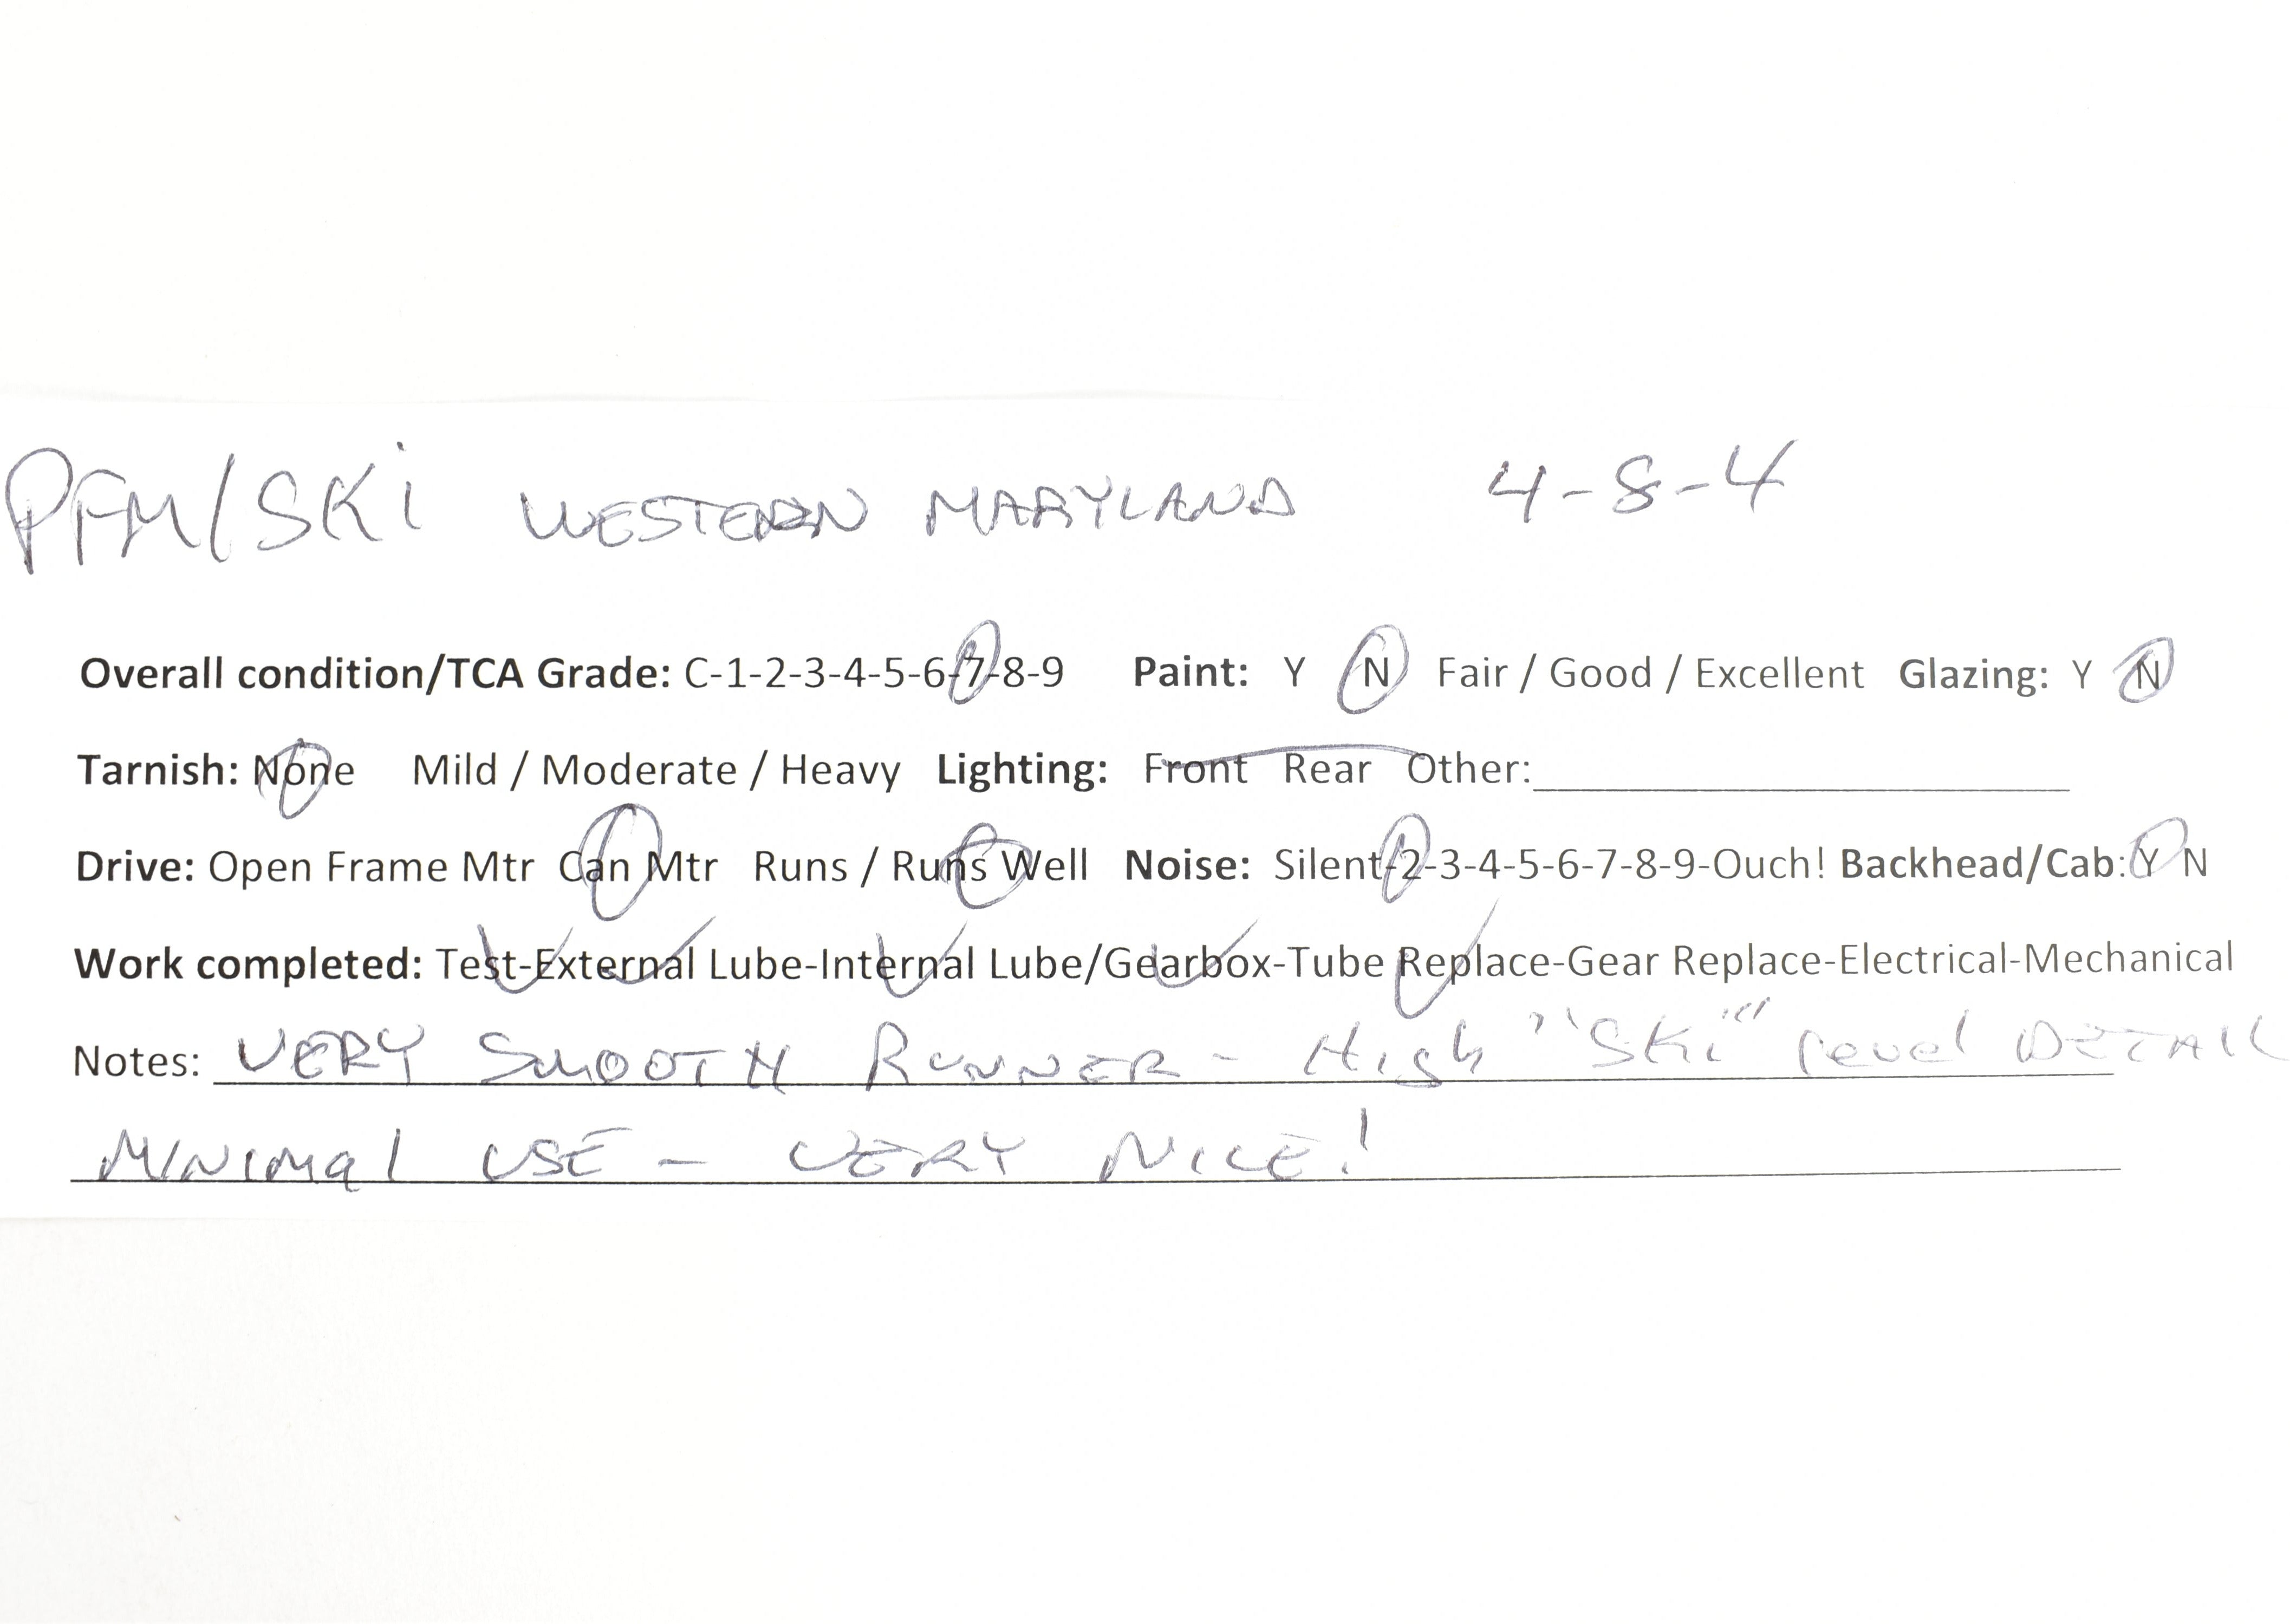 PFM/SKi WESTERN MARYLAND 4-8-4
Overall condition/TCA Grade: C-1-2-3-4-5-6-7-8-9 Paint: Y N Fair / Good / Excellent Glazing: Y N
Tarnish: None Mild / Moderate / Heavy Lighting: Front Rear Other:
Drive: Open Frame Mtr Can Mtr Runs / Runs Well Noise: Silent-2-3-4-5-6-7-8-9-Ouch! Backhead/Cab: Y N
Work completed: Test-External Lube-Internal Lube/Gearbox-Tube Replace-Gear Replace-Electrical-Mechanical
Notes: VERY SMOOTH RUNNER - High "SKi" level DETAIL
MINIMAl USE - VERY NICE!